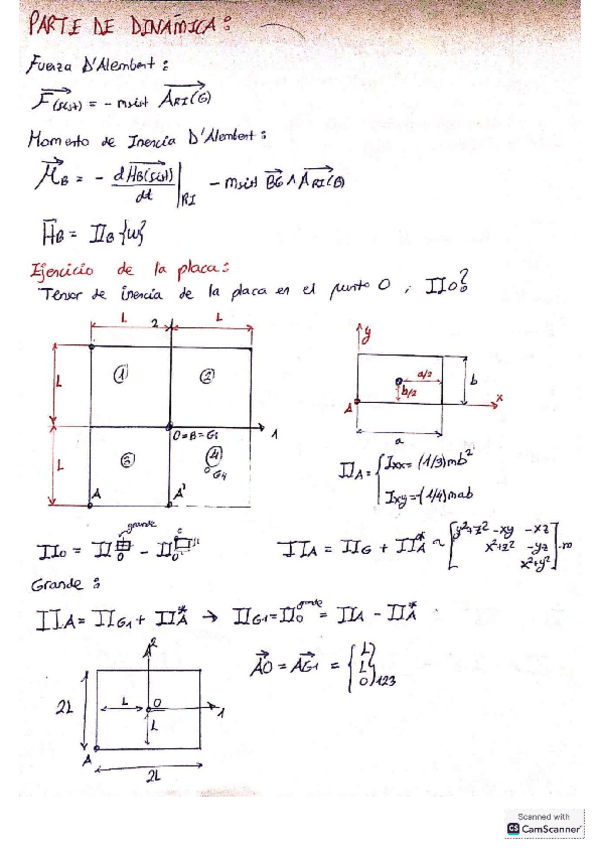 PARTE DE DINÁMICA:
Fuerza D'Alembert:
F(sist) = - msist ARI(G)
Momento de Inercia D'Alembert:
MB = - dHB(sist)/dt |RI - msist BG ∧ ARI(B)
HB = IIB {ω}
Ejercicio de la placa:
Tensor de inercia de la placa en el punto O, IIO?
L 2 L
L ① ②
O=B=G1 1
L ③ ④
G4
A A'
y
a/2
b/2 b
A x
a
IIA = { Ixx = (1/3)mb²
Ixy = (1/4)mab
grande
IIO = II O - II O
IIA = IIG + IIA* ~ [ y²+z² -xy -xz
x²+z² -yz
x²+y² ] · m
Grande:
IIA = IIG1 + IIA* → IIG1 = IIO grande = IIA - IIA*
AO = AG1 = { L
L
0 }123
2
2L L O 1
L
A
2L
Scanned with
CS CamScanner